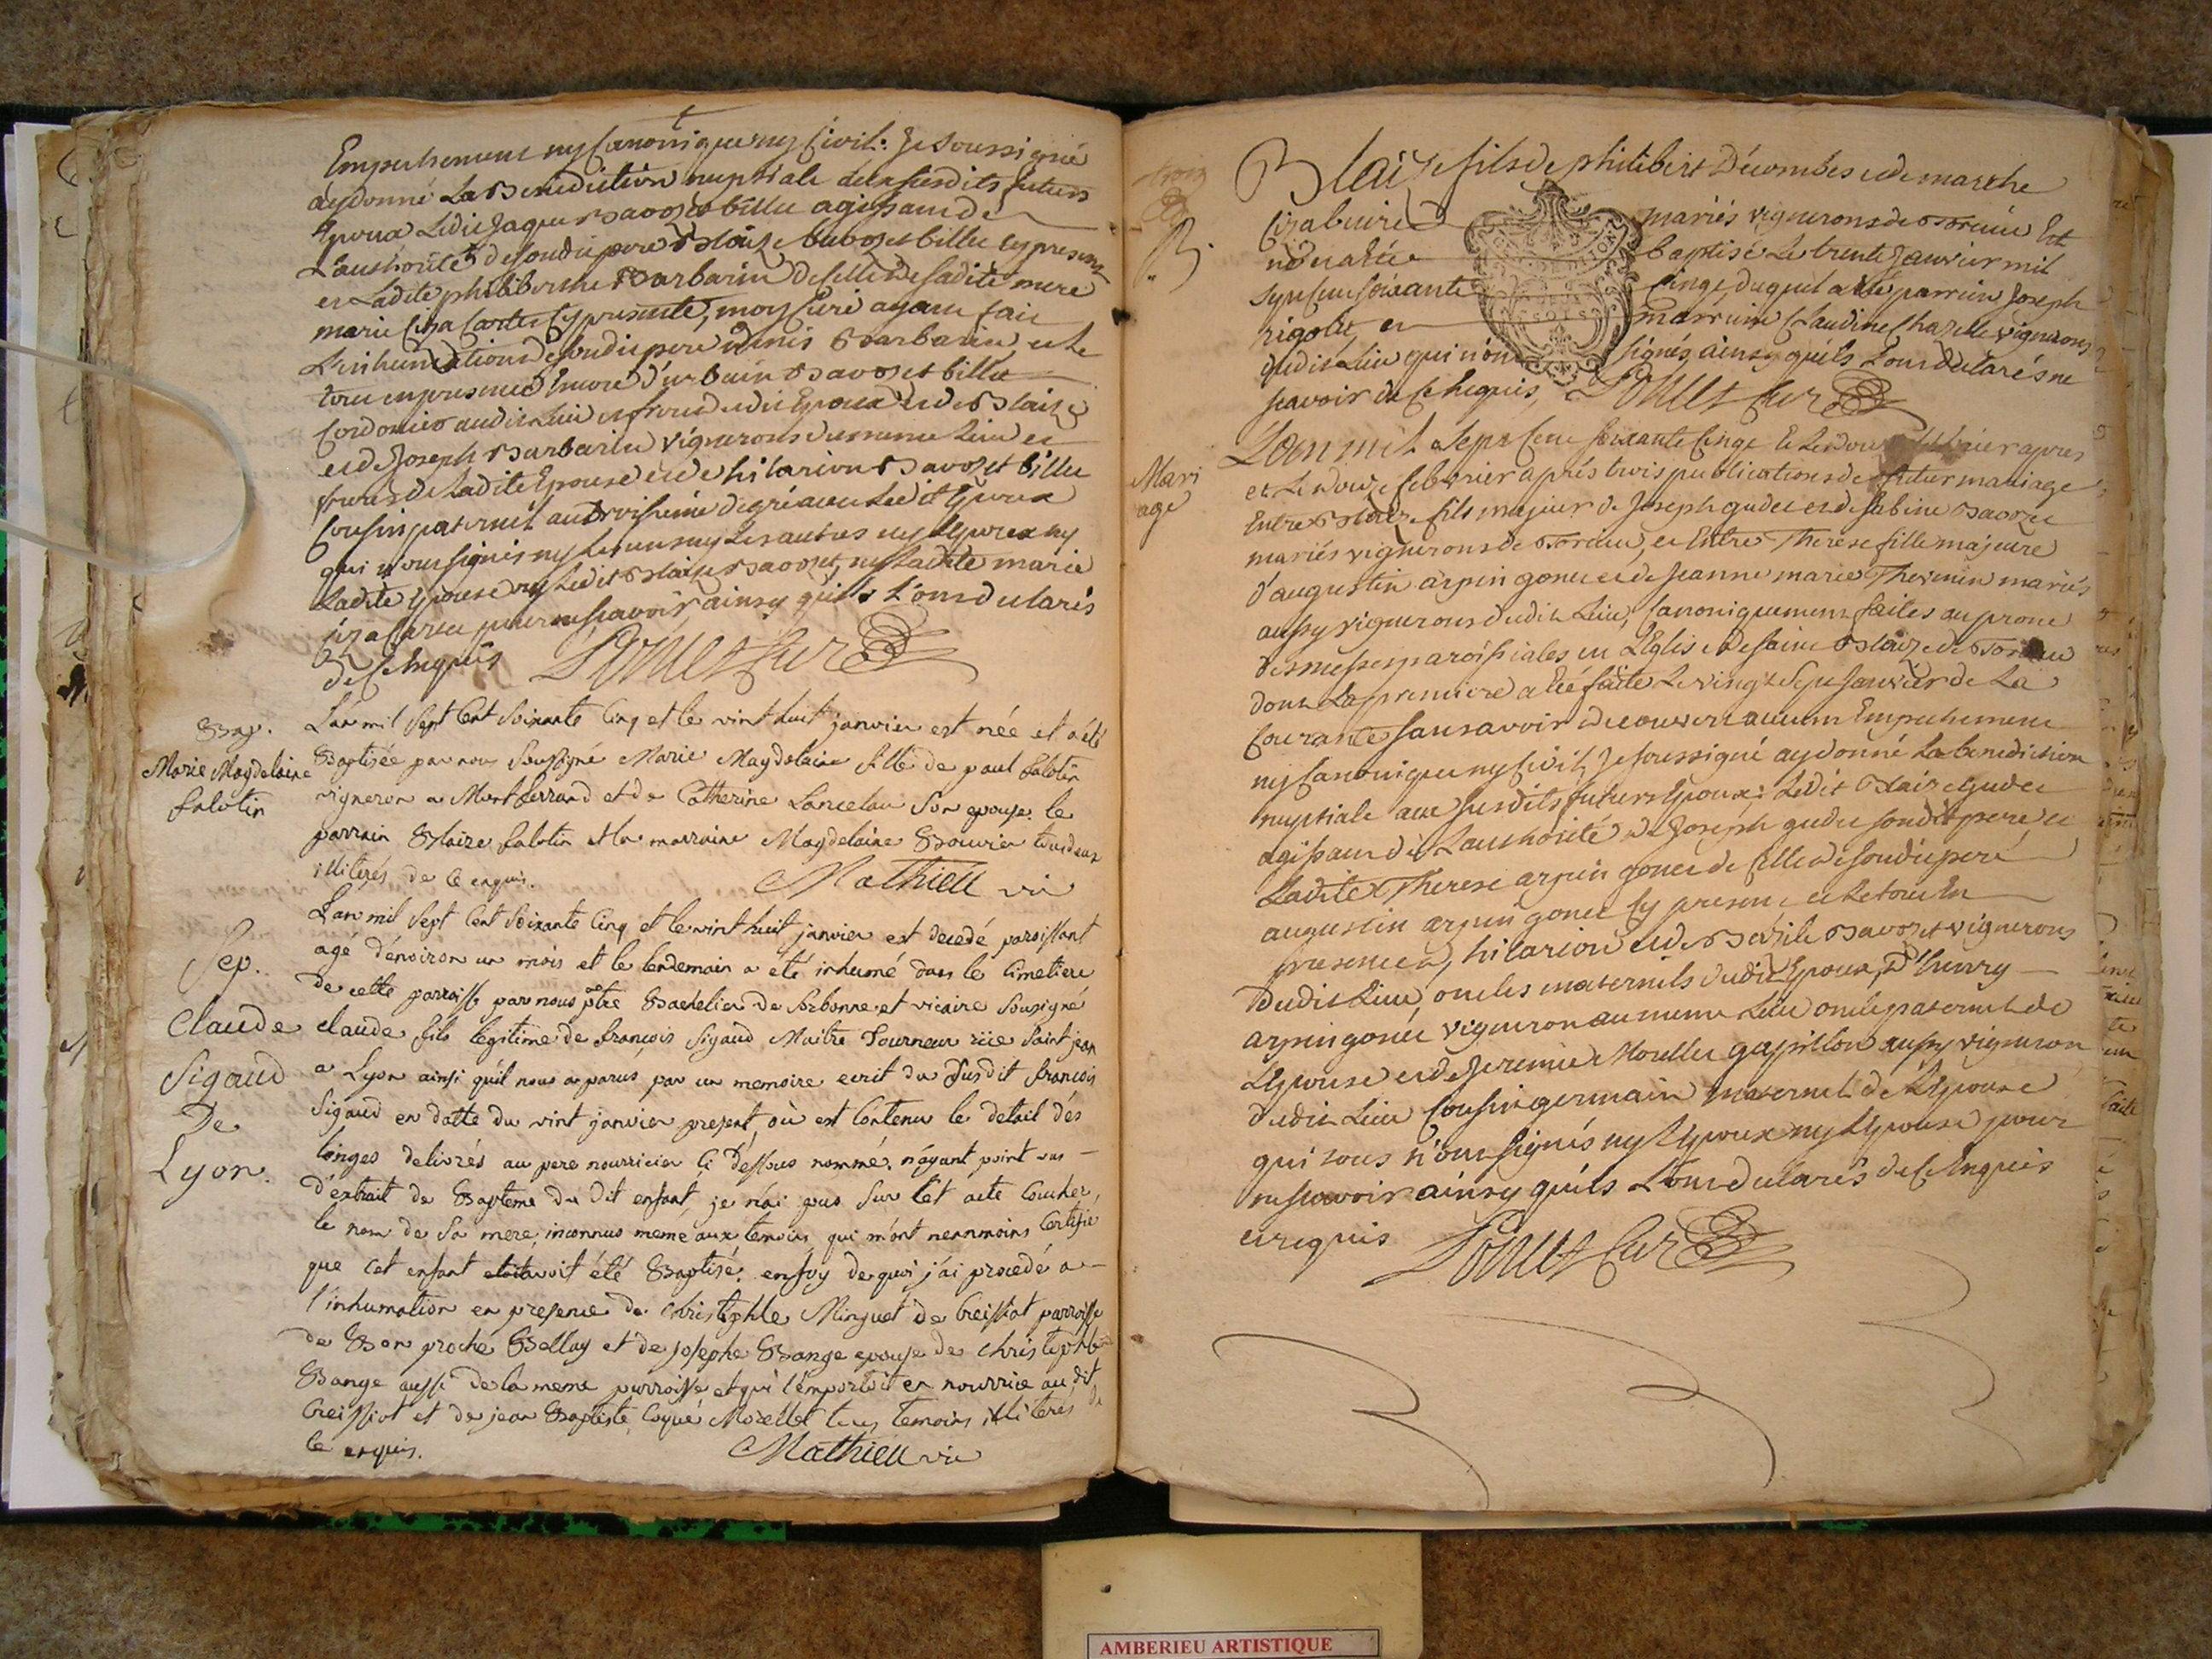 Empechement ny Canonique ny Civil: Je soussigné
ay donné La Benediction nuptiale aux susdits futurs
Epoux Ledit Jaque Savoyet billu agissant de
L'authorité de sondit pere Blaize Savoyet billu cy present
et Ladite philiberthe Barbarin de celle de sadite mere
marie Ciza Cartu cy presente, moy Curé ayant fait
L'inhumation de sondit pere denis Barbarin et Le
tout en presence encore d'urbain Savoyet billu
Cordonier audit Lieu et frere dudit Epoux et de Blaize
et de Joseph Barbarin vignerons du meme Lieu et
freres de Ladite Epouse et de hilarion Savoyet billu
Cousin paternel au troisieme degré avec Ledit Epoux
qui n'ont signés ny Les uns ny Les autres ny L'Epoux ny
Ladite Epouse ny Ledit Blaize Savoyet, ny Ladite marie
Ciza Cartu pour ne scavoir ainsy quils L'ont declarés
de ce Enquis
Bap.
Marie Magdelaine
falotin
L'an mil Sept Cent Soixante Cinq et le vint huit janvier est née et a été
Baptisée par nous Sousigné Marie Magdelaine fille de paul falotin
vigneron a Montferrand et de Catherine Lancelau Son epouse. le
parrain Blaize falotin et la marraine Magdelaine Bouvier tous deux
illiterés de ce enquis. Mathieu vic
Sep.
Claude
Sigaud
De
Lyon.
L'an mil Sept Cent Soixante Cinq et le vint huit janvier est decedé paroissant
agé d'environ un mois et le lendemain a été inhumé dans le Cimetiere
de cette parroisse par nous ptre Bachelier de Sorbonne et vicaire Sousigné
claude fils legitime de françois Sigaud Maitre Tourneur rüe Saint jean
a Lyon ainsi qu'il nous a parus par un memoire ecrit du Susdit françois
Sigaud en datte du vint janvier present, où est Contenu le detail des
langes delivrés au pere nourricier Ci dessous nommé. n'ayant point vus
d'extrait de Bapteme du Dit enfant, je n'ai pus Sur Cet acte Coucher,
le nom de Sa mere inconnus meme aux temoins qui m'ont neanmoins Certifié
que cet enfant avoit été Baptisé. en foy de quoi j'ai procedé a
l'inhumation en presence de christophle Minguet de Creissiat parroisse
de Bon proche Bellay et de josephe Bange epouse de christophle
Bange aussi de la meme parroisse et qui l'emportoit en nourrice au dit
Creissiat et de jean Baptiste Coqué Morellet tous temoins illiterés de
ce enquis. Mathieu vic
Blaize fils de philibert Décombes et de marthe
Cizabuire mariés vignerons de Torcieu Est
né et a été baptisé Le trente Janvier mil
Sept Cent Soixante Cinq, duquel a été parrain Joseph
rigolet et marraine Claudine Chazelle vignerons
dudit Lieu qui n'ont signés, ainsy quils L'ont declarés ne
scavoir de ce Enquis,
Mari
age
L'an mil Sept Cent Soixante Cinq
et Le douze febvrier aprés trois publications de futur mariage
Entre Blaize fils majeur de Joseph gudet et de Sabine Savoyet
mariés vignerons de Torcieu, et Entre Therese fille majeure
d'augustin arpin gonet et de Jeanne marie Thevenin mariés
aussy vignerons dudit Lieu, Canoniquement faites au prone
des messes paroissiales en L'Eglise de saint Blaize de Torcieu
dont La premiere a été faite Le vingt Sept Janvier de La
Courante sans avoir decouvert aucun Empechement
ny Canonique ny Civil, Je soussigné ay donné La benediction
nuptiale aux susdits futurs Epoux: Ledit Blaize gudet
agissant de L'authorité de Joseph gudet sondit pere, et
Ladite Therese arpin gonet de celle de sondit pere
augustin arpin gonet cy present et Le tout En
presence d'hilarion et de Basile Savoyet vignerons
dudit Lieu, oncles maternels dudit Epoux, d'henry
arpin gonet vigneron au meme Lieu oncle paternel de
L'Epouse et de Jeremie Morellet gapillon aussy vigneron
dudit Lieu Cousin germain maternel de L'Epouse
qui tous n'ont signés ny L'Epoux ny L'Epouse pour
ne scavoir ainsy quils L'ont declarés de ce Enquis
et requis
AMBERIEU ARTISTIQUE